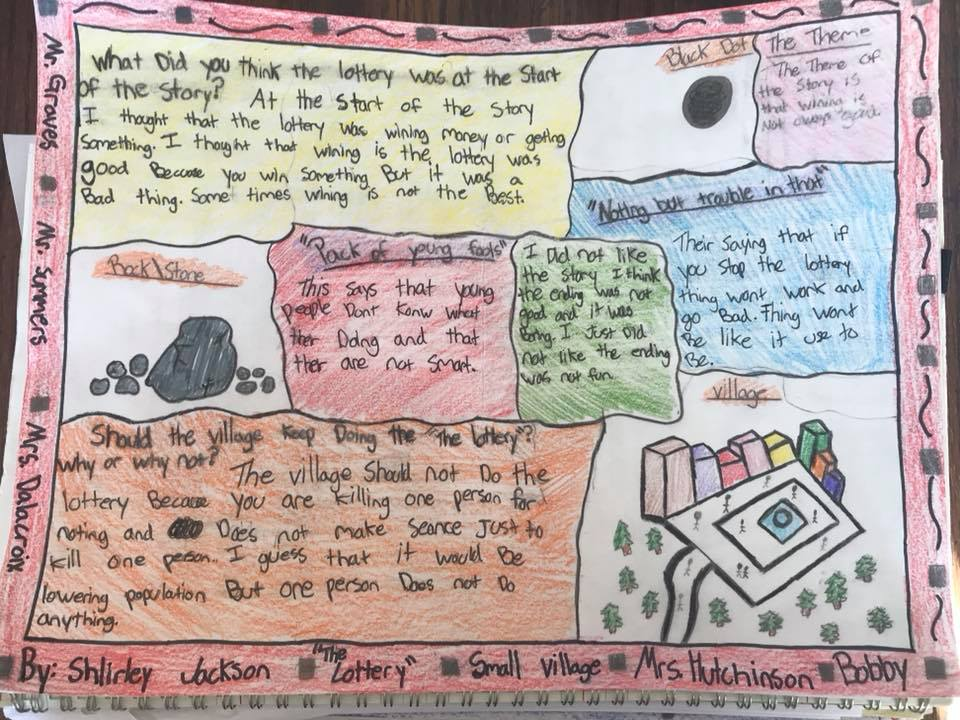 What Did you think the lottery was at the Start
of the Story? At the Start of the Story
I thought that the lottery was wining money or geting
Something. I thought that wining is the lottery was
good Because you win Something But it was a
Bad thing. Some times wining is not the Best.
Black Dot
The Theme
The Theme of
the Story is
that wining is
Not always good.
"Noting but trouble in that"
Their Saying that if
you Stop the lottery
thing wont work and
go Bad. Thing wont
Be like it use to
Be.
Rock\Stone
"Pack of young fools"
This says that young
people Dont Kanw what
ther Doing and that
ther are not Smart.
I Did not like
the Story I think
the ending was not
good and it was
Boring. I Just Did
not like the ending
was not fun.
village
Should the village Keep Doing the "The lottery"?
why or why not? The village Should not Do the
lottery Because you are killing one person for
noting and Does not make Seance Just to
kill one person.. I guess that it would Be
lowering population But one person Does not Do
anything.
Mr. Graves Mr. Summers Mrs. Dalacroix
By: Shlirley Jackson "The Lottery" Small village Mrs. Hutchinson Bobby